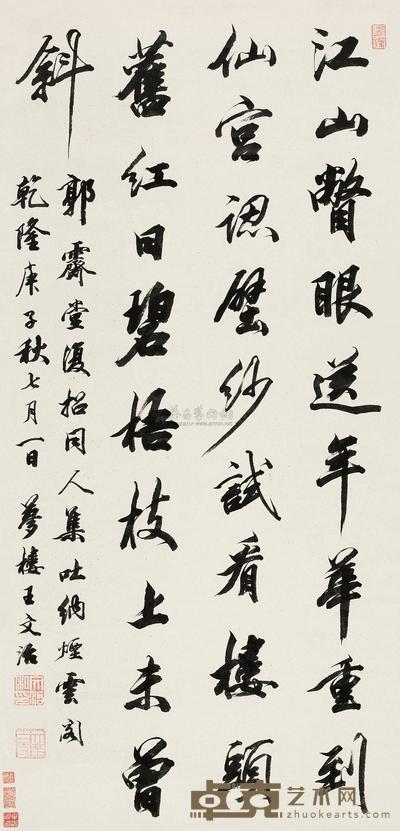 江山瞥眼送年華重到
仙宮認壁紗試看樓頭
舊紅日碧梧枝上未曾
斜
郭霽堂復招同人集吐納煙雲閣
乾隆庚子秋七月一日 夢樓王文治
艺术网
www.zhuokearts.com